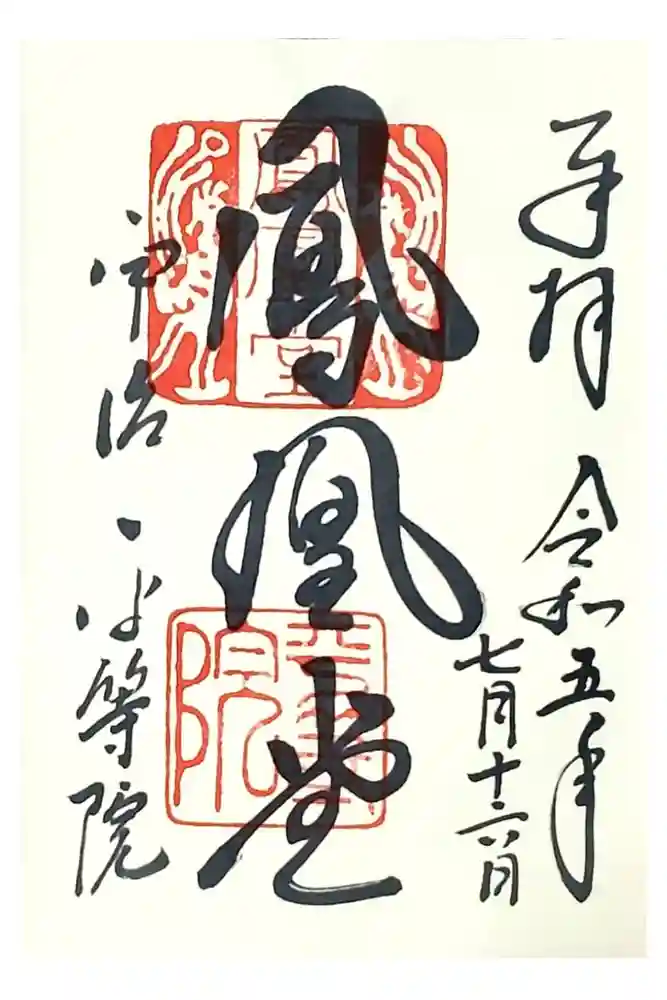 奉拝 令和五年
七月十六日
鳳凰堂
宇治 平等院
鳳凰堂
平等院